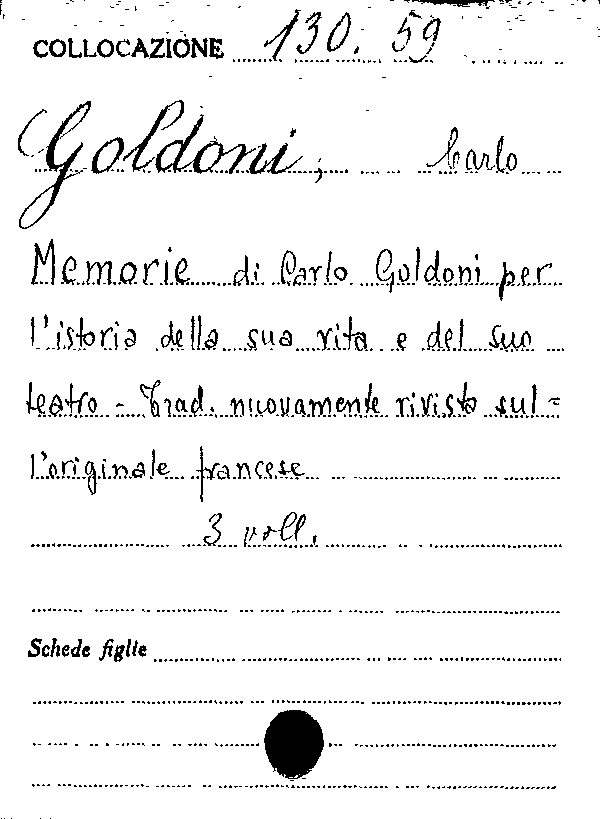 COLLOCAZIONE 130. 59
Goldoni, Carlo
Memorie di Carlo Goldoni per
l'istoria della sua vita e del suo
teatro - Trad. nuovamente rivista sul=
l'originale francese
3 voll.
Schede figlie